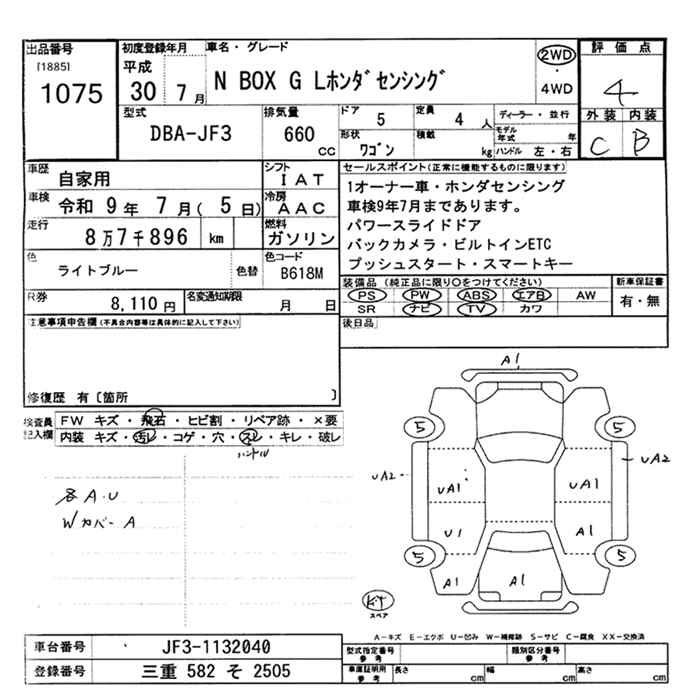 出品番号
[1885]
1075
初度登録年月
平成
30 年 7 月
車名・グレード
N BOX G Lホンダセンシング
2WD
・
4WD
評価点
4
外装 内装
C B
型式
DBA-JF3
排気量
660
CC
ドア
5
定員
4 人
形状
ワゴン
積載
kg
ディーラー・並行
モデル年式 年
ハンドル 左・右
車歴
自家用
シフト
I A T
車検
令和 9 年 7 月( 5 日)
冷房
A A C
走行
8万7千896 km
燃料
ガソリン
色
ライトブルー
色替
色コード
B618M
R券
8,110 円
名変通知期限
月 日
セールスポイント(正常に機能するものに限ります)
1オーナー車・ホンダセンシング
車検9年7月まであります。
パワースライドドア
バックカメラ・ビルトインETC
プッシュスタート・スマートキー
装備品 (純正品に限り○をつけてください)
PS PW ABS エアB AW
SR ナビ TV カワ
新車保証書
有・無
後日品
注意事項申告欄(不具合内容等は具体的に記入して下さい)
修復歴 有〔箇所 〕
検査員
記入欄
FW キズ・飛石・ヒビ割・リペア跡・×要
内装 キズ・汚レ・コゲ・穴・スレ・キレ・破レ
ハンドル
各A・U
Wカバー A
A1
5
5
UA2
UA2
UA1
UA1
U1
A1
5
5
A1
A1
スペア
A-キズ E-エクボ U-凹み W-補修跡 S-サビ C-腐食 XX-交換済
車台番号
JF3-1132040
登録番号
三重 582 そ 2505
型式指定番号
参考
類別区分番号
参考
車庫証明用
参考
長さ cm
幅 cm
高さ cm